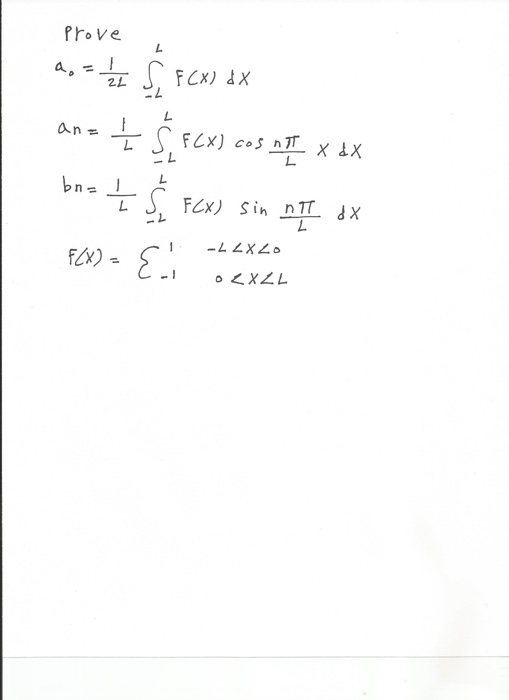 Prove
a₀ = 1/2L ∫_{-L}^{L} F(X) dX
an = 1/L ∫_{-L}^{L} F(X) cos nπ/L X dX
bn = 1/L ∫_{-L}^{L} F(X) sin nπ/L dX
F(X) = { 1 -L<X<0
-1 0<X<L